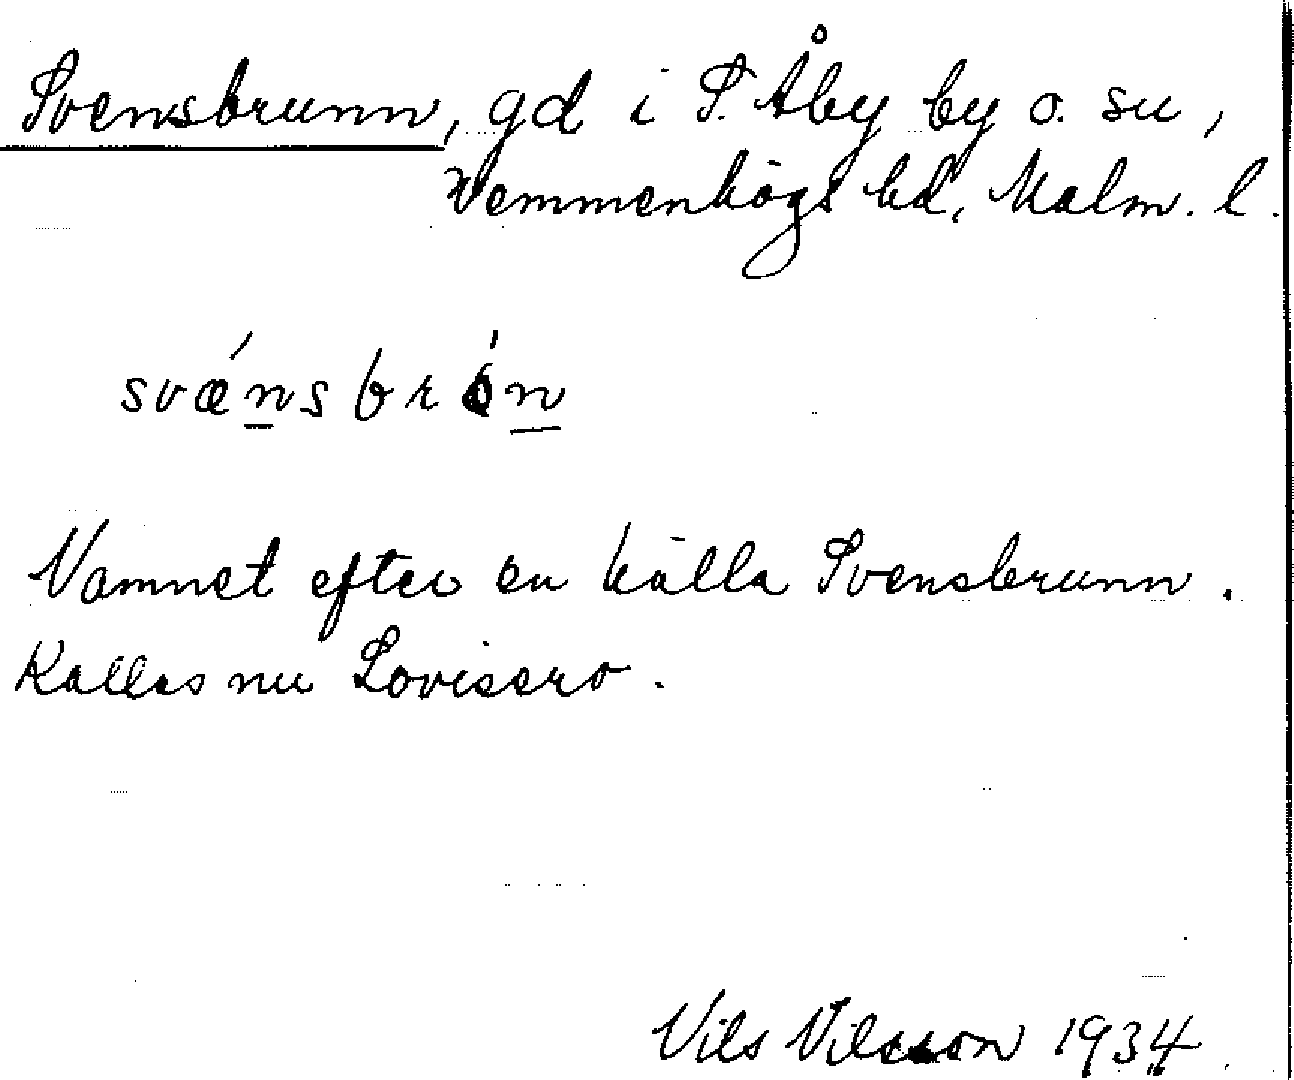 Svensbrunn, gd i S. Åby by o. sn,
Vemmenhögs hd, Malm. l.
svǽnsbrón
Namnet efter en källa Svensbrunn.
Kallas nu Lovisero.
Nils Nilsson 1934